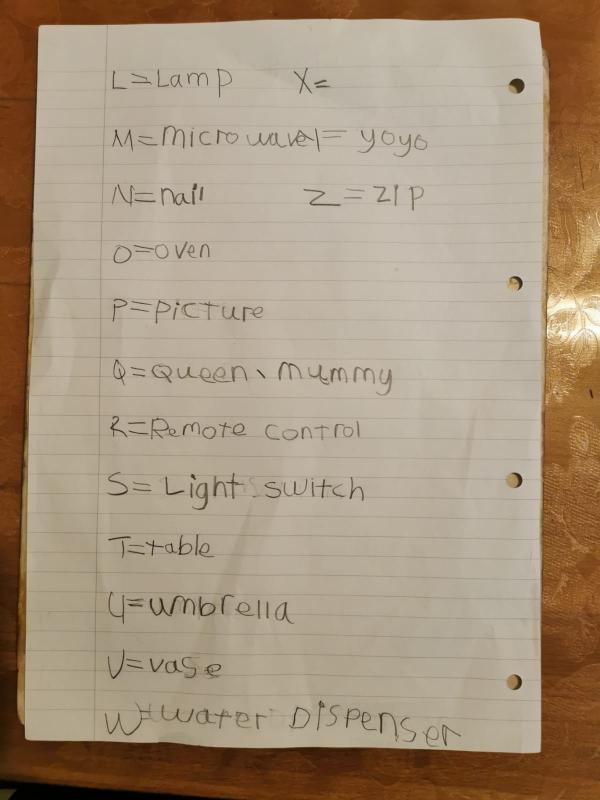 L=Lamp X=
M=microwave Y= yoyo
N=nail Z=zip
O=oven
P=picture
Q=Queen, mummy
R=Remote control
S= Light switch
T=table
U=umbrella
V=vase
W=water Dispenser